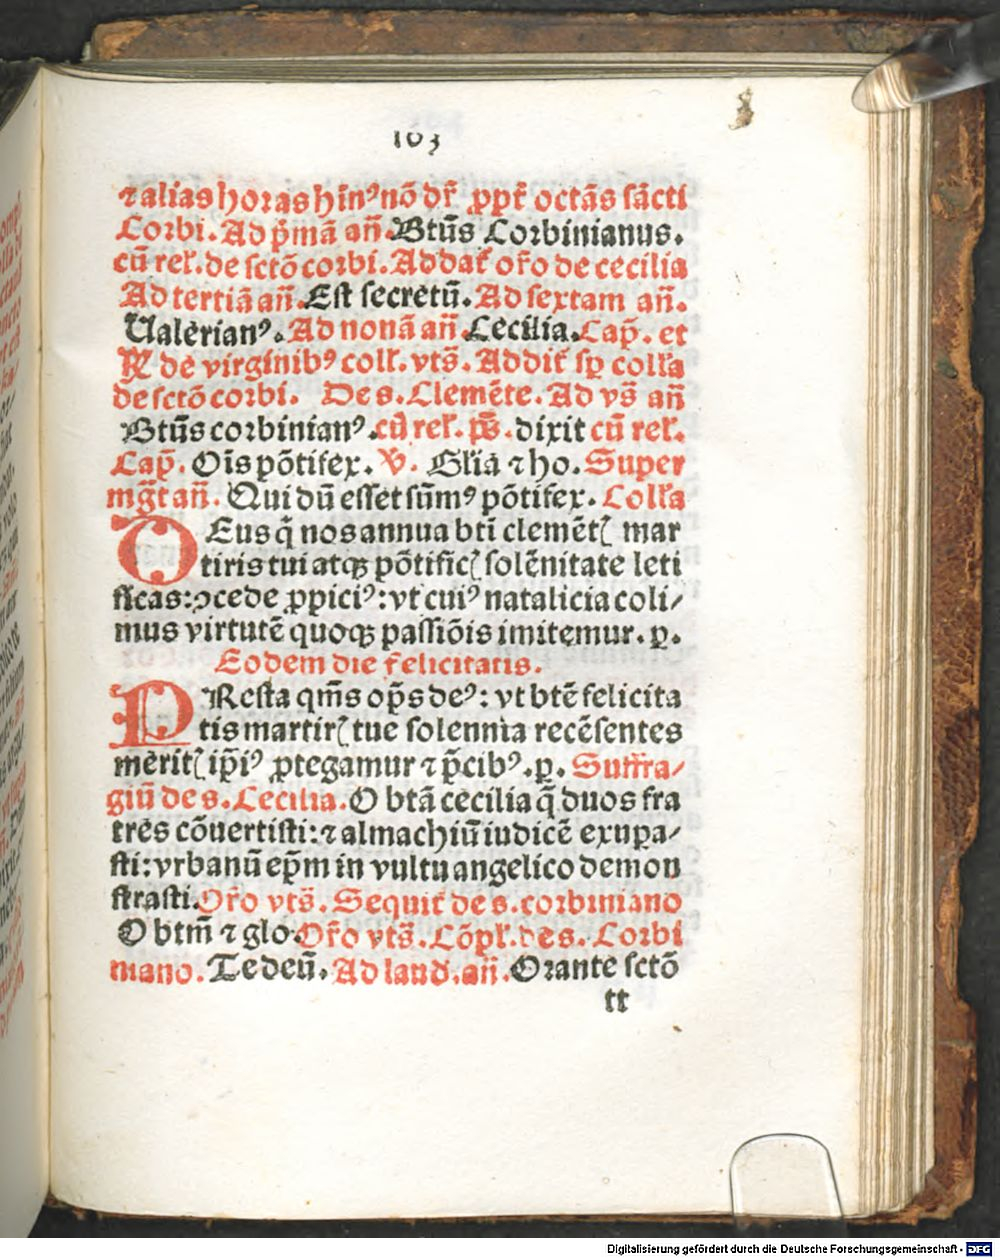 103
⁊ alias horas hin⁹ nō dr̄ ꝓpt̄ octās sācti
Corbi. Ad p̄mā an̄. Btūs Corbinianus.
cū rel̄. de sctō corbi. Addat̄ or̄o de cecilia
Ad tertiā an̄. Est secretū. Ad sextam an̄.
Ualerian⁹. Ad nonā an̄ Cecilia. Cap̄. et
℟ de virginib⁹ coll̄. vts̄. Addit̄ sp̄ coll̄a
de sctō corbi. De s. Clemēte. Ad vs̄ an̄
Btūs corbinian⁹. cū rel̄. ps̄. dixit cū rel̄.
Cap̄. Oīs pōtifex. V. Gl̄ia ⁊ ho. Super
mḡt an̄. Qui dū esset sūm⁹ pōtifex. Coll̄a
DEus q̄ nos annua bti clemētꝭ mar
tiris tui atqꝫ pōtificꝭ solēnitate leti
ficas: ꝯcede ꝓpici⁹: vt cui⁹ natalicia coli/
mus virtutē quoqꝫ passiōis imitemur. p.
Eodem die felicitatis.
PResta qm̄s op̄s de⁹: vt btē felicita
tis martirꝭ tue solennia recēsentes
meritꝭ ip̄i⁹ ꝓtegamur ⁊ p̄cib⁹. p. Suffra/
giū de s. Cecilia. O btā cecilia q̄ duos fra
tres cōuertisti: ⁊ almachiū iudicē exupa/
sti: vrbanū ep̄m in vultu angelico demon
strasti. Or̄o vts̄. Sequit̄ de s. corbiniano
O btm̄ ⁊ glo. Or̄o vts̄. Cōpl̄. de s. Corbi
niano. Te deū. Ad laud. an̄. Orante sctō
tt
Digitalisierung gefördert durch die Deutsche Forschungsgemeinschaft - DFG